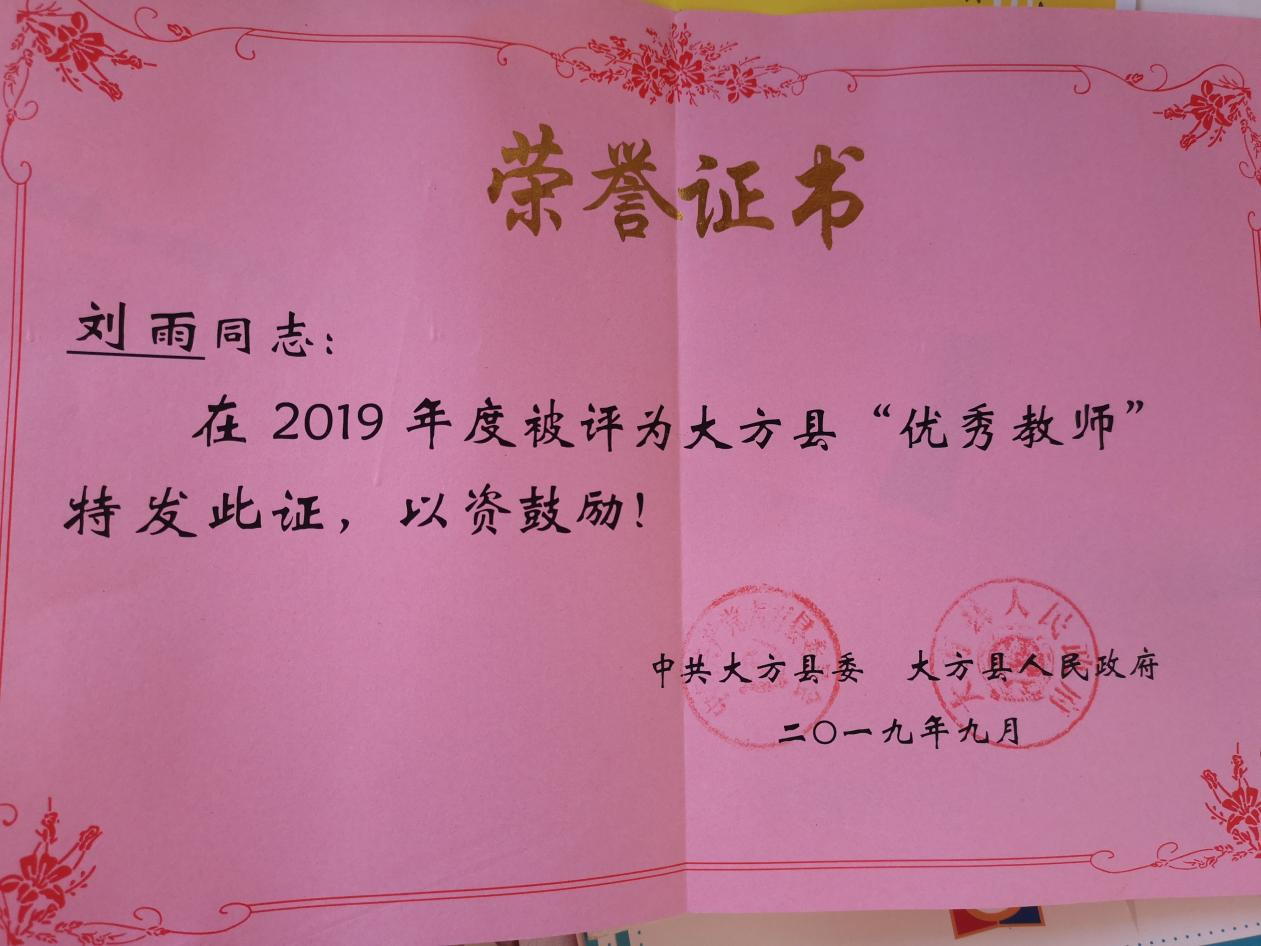 荣誉证书
刘雨同志：
在 2019 年度被评为大方县“优秀教师”
特发此证，以资鼓励！
中共大方县委 大方县人民政府
二〇一九年九月